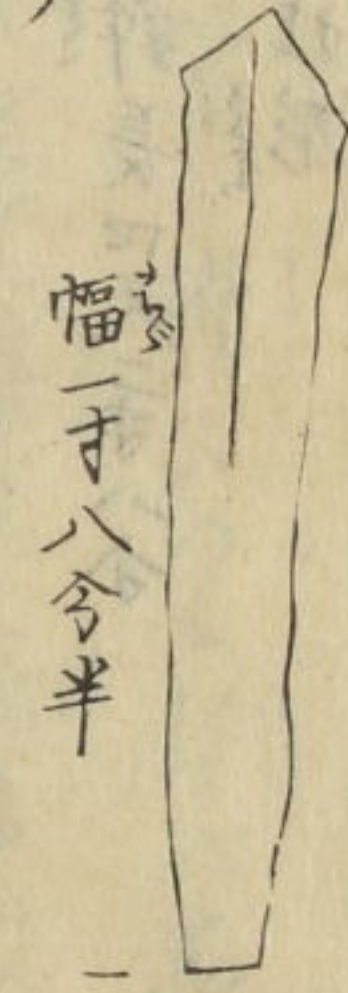 幅一寸八分半